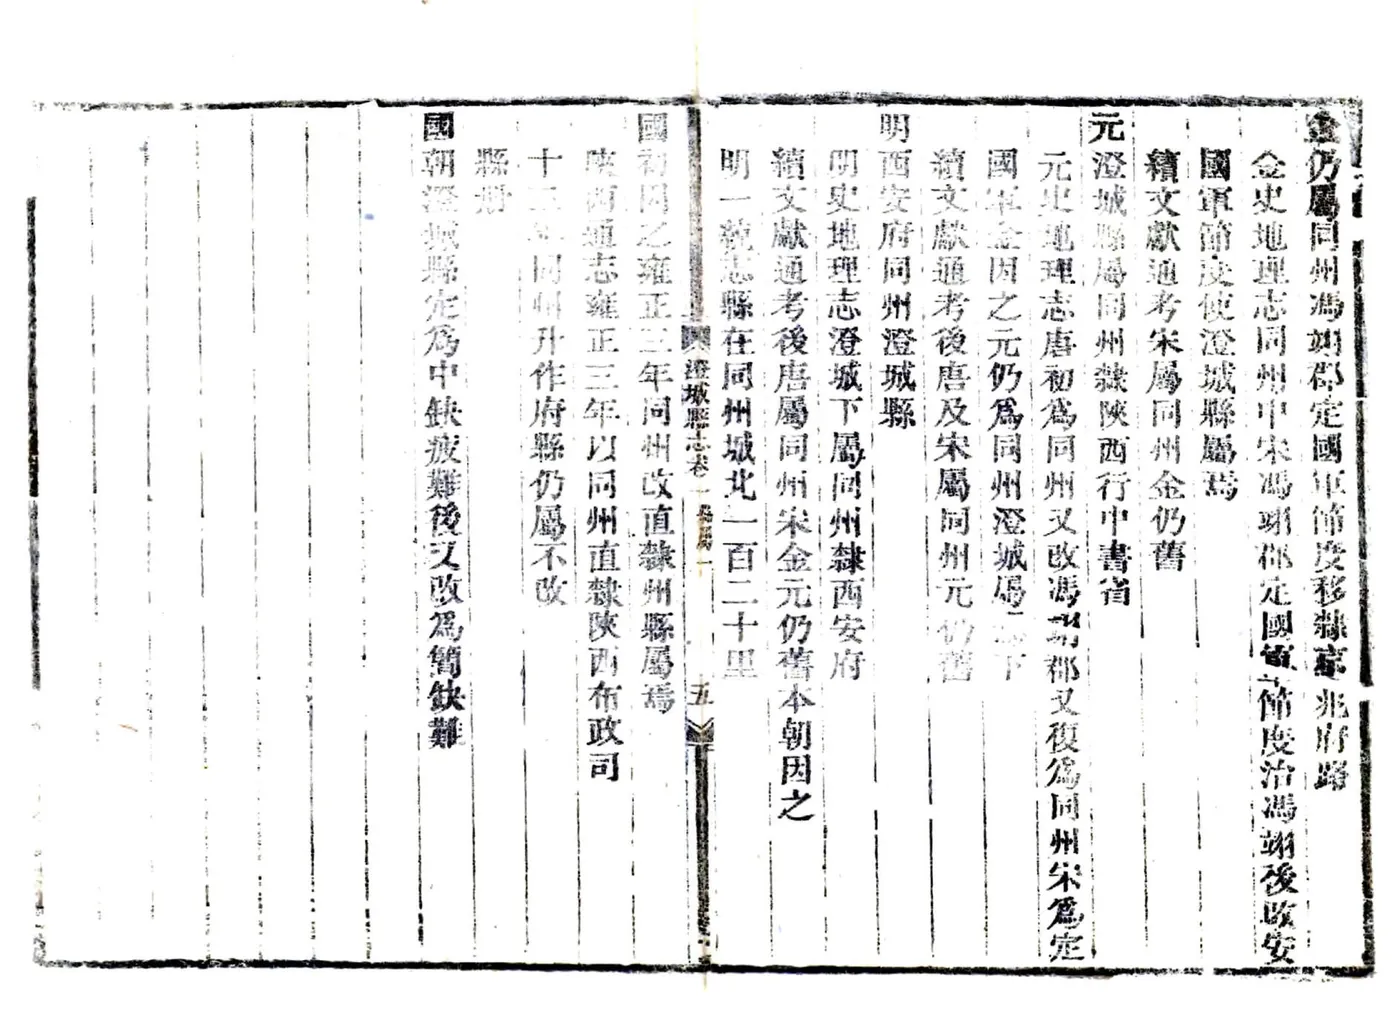 金仍屬同州馮翊郡定國軍節度移隸京兆府路
金史地理志同州中宋馮翊郡定國軍節度治馮翊後改安
國軍節度使澄城縣屬焉
續文獻通考宋屬同州金仍舊
元澄城縣屬同州隸陝西行中書省
元史地理志唐初為同州又改馮翊郡又復為同州宋為定
國軍金因之元仍為同州澄城屬焉下
續文獻通考後唐及宋屬同州元仍舊
明西安府同州澄城縣
明史地理志澄城下屬同州隸西安府
續文獻通考後唐屬同州宋金元仍舊本朝因之
明一統志縣在同州城北一百二十里
澄城縣志卷一 五
國初因之雍正三年同州改直隸州縣屬焉
陝西通志雍正三年以同州直隸陝西布政司
十三年同州升作府縣仍屬不改
縣冊
國朝澄城縣定為中缺疲難後又改為簡缺難